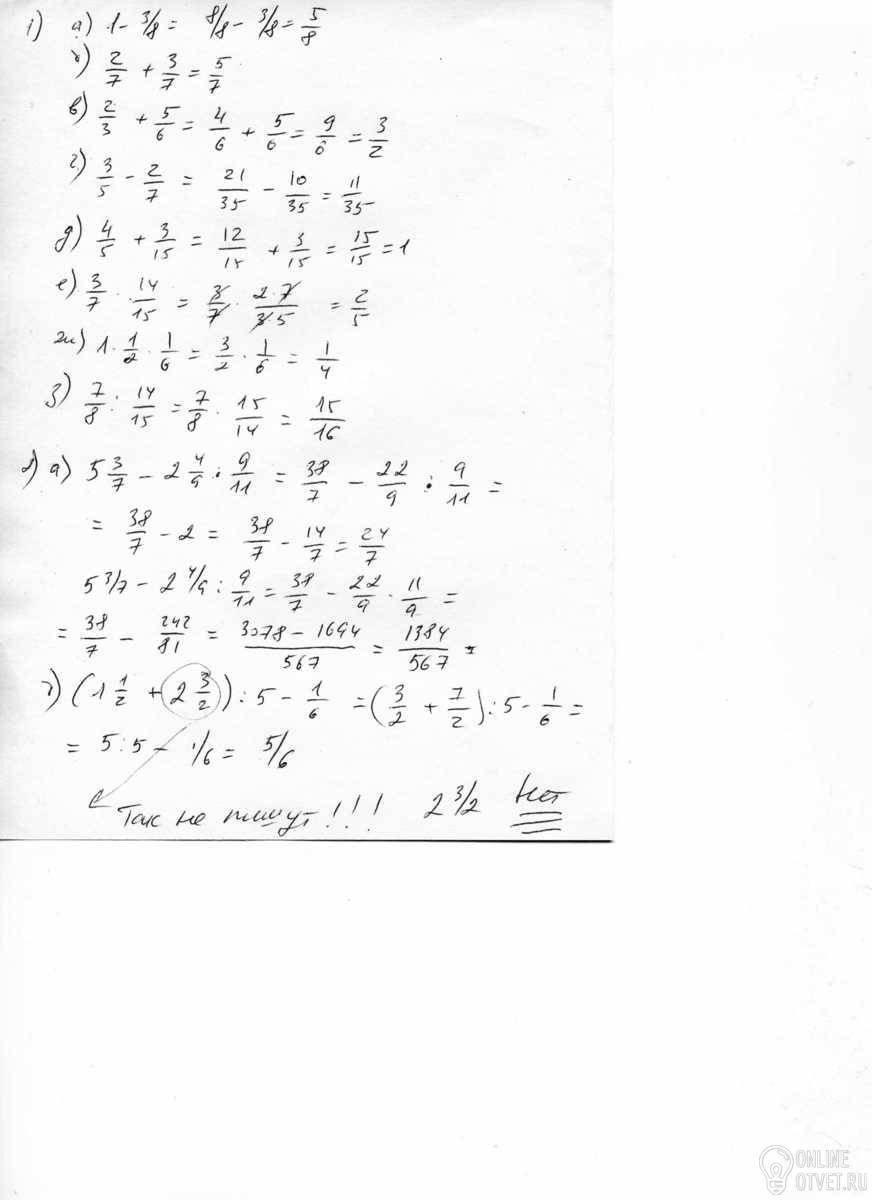 1) а) 1 - 3/8 = 8/8 - 3/8 = 5/8
б) 2/7 + 3/7 = 5/7
в) 2/3 + 5/6 = 4/6 + 5/6 = 9/6 = 3/2
г) 3/5 - 2/7 = 21/35 - 10/35 = 11/35
д) 4/5 + 3/15 = 12/15 + 3/15 = 15/15 = 1
е) 3/7 · 14/15 = 3/7 · 2·7/3·5 = 2/5
ж) 1·1/2 · 1/6 = 3/2 · 1/6 = 1/4
з) 7/8 : 14/15 = 7/8 · 15/14 = 15/16
2) а) 5 3/7 - 2 4/9 · 9/11 = 38/7 - 22/9 · 9/11 =
= 38/7 - 2 = 38/7 - 14/7 = 24/7
5 3/7 - 2 4/9 : 9/11 = 38/7 - 22/9 · 11/9 =
= 38/7 - 242/81 = 3078 - 1694/567 = 1384/567
б) (1 1/2 + 2 3/2) : 5 - 1/6 = (3/2 + 7/2) : 5 - 1/6 =
= 5 : 5 - 1/6 = 5/6
Так не пишут!!! 2 3/2 Нет
ONLINE
OTVET.RU